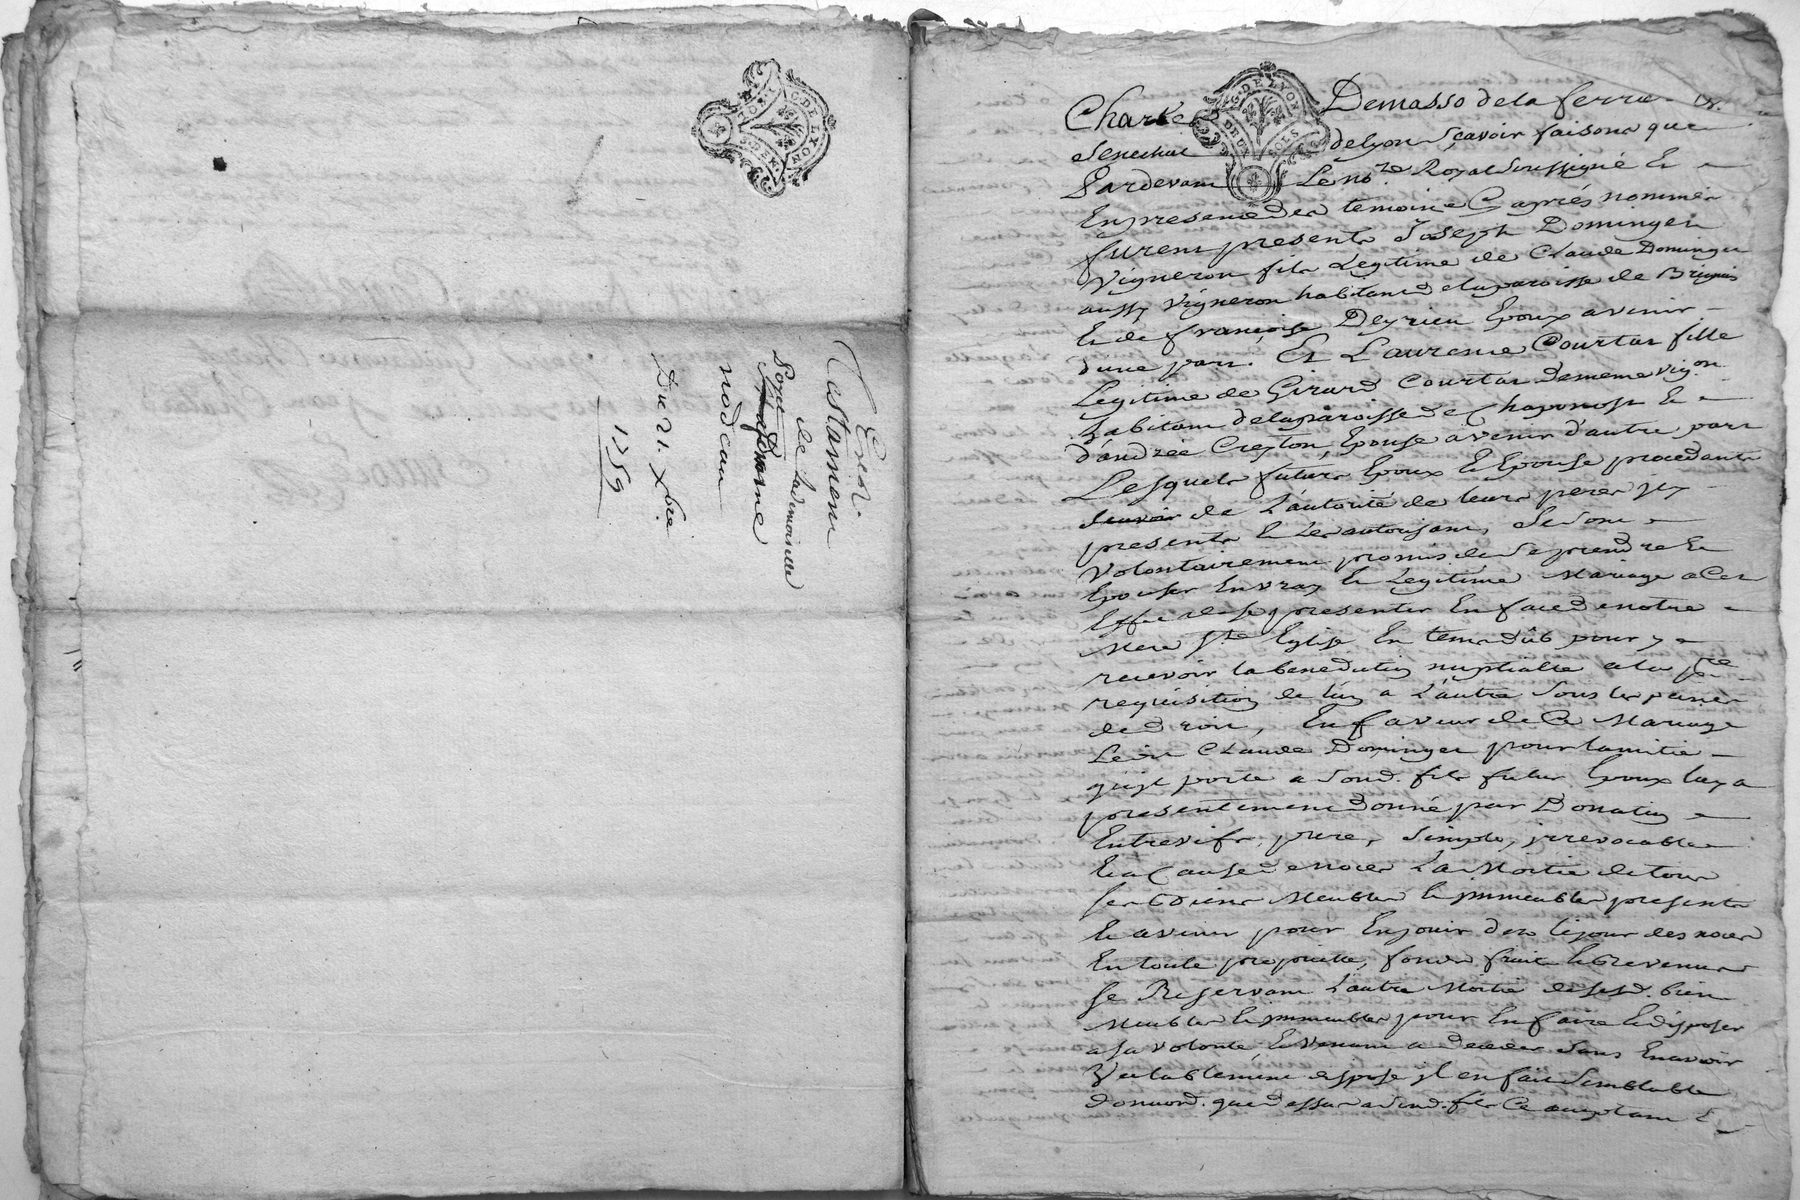 G. DE LYON
DEUX SOLS
Exed.
Testament
de la demoiselle
nodeau
Du 21. Xbre.
1759
G. DE LYON
DEUX SOLS
Charles Demasso de la ferriere
Senechal de lyon Sçavoir faisons que
Pardevant Le nore Royal Soussigné Et
En presence des temoins Cy aprés nommés
furent presents Joseph Dominger
Vigneron fils Legitime de Claude Dominger
aussy Vigneron habitant de la paroisse de Brignais
Et de françoise Deyrieu Epoux avenir
dune part. Et Laurence Courtas fille
Legitime de Girard Courtas de meme vigon
habitant de la paroisse de Chaponost Et
d'andrée Creyton Epouse avenir d'autre part
Lesquels futurs Epoux Et Epouse procedants
de L'autorité de leurs peres jcy
presents Et Les autorisant, Se Sont
Volontairement promis de Se prendre Et
Epouser En vray Et Legitime Mariage a Cet
Effet de se presenter En face de notre
Mere Ste Eglise En tems dûb pour y
recevoir la benediction nuptialle a la pre
requisition de lun a L'autre Sous les peines
de droit, En faveur de Ce Mariage
Ledit Claude Dominger pour lamitié
quil porte a Sond. fils futur Epoux luy a
presentement donné par Donation
Entrevifs, pure, Simple, jrrevocable
Et a Cause de noces La Moitie de tous
ses Biens Meubles Et jmmeubles presents
Et avenir pour En jouir des le jour des noces
En toute proprieté, fonds fruits Et Revenus
se Reservant L'autre Moitié de sesd. biens
Meubles Et jmmeubles pour En faire Et disposer
a sa volonté, Et Venant a Deceder Sans En avoir
Vallablement disposé jl en fait Semblable
donaon. que dessus a Sond. fils Ce acceptant Et